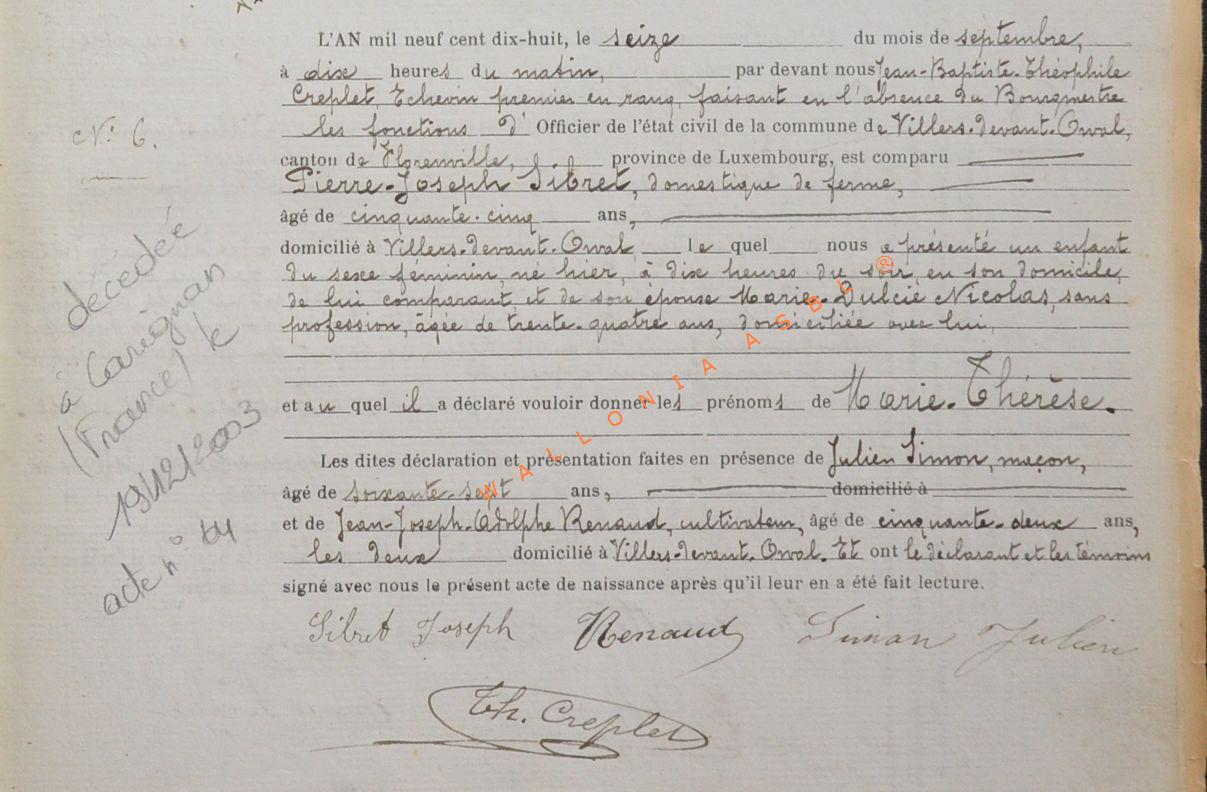 L'AN mil neuf cent dix-huit, le seize du mois de septembre,
à dix heures du matin, par devant nous Jean-Baptiste-Théophile
Creplet, Echevin premier en rang, faisant en l'absence du Bourgmestre
les fonctions d' Officier de l'état civil de la commune de Villers-devant-Orval,
canton de Florenville, province de Luxembourg, est comparu
Pierre-Joseph Sibret, domestique de ferme,
âgé de cinquante-cinq ans,
domicilié à Villers-devant-Orval, le quel nous a présenté un enfant
du sexe féminin, né hier, à dix heures du soir, en son domicile,
de lui comparant et de son épouse Marie-Dulcie Nicolas, sans
profession, âgée de trente-quatre ans, domiciliée avec lui,
et au quel il a déclaré vouloir donner les prénoms de Marie-Thérèse.
Les dites déclaration et présentation faites en présence de Julien Simon, maçon,
âgé de soixante-sept ans, domicilié à
et de Jean-Joseph-Adolphe Renaud, cultivateur, âgé de cinquante-deux ans,
les deux domicilié à Villers-devant-Orval. Et ont le déclarant et les témoins
signé avec nous le présent acte de naissance après qu'il leur en a été fait lecture.
Sibret Joseph Renaud Simon Julien
Th. Creplet
N° 6.
décédée
à Carignan
(France) le
19/12/2003
acte n°
WALLONIA ASBL ®